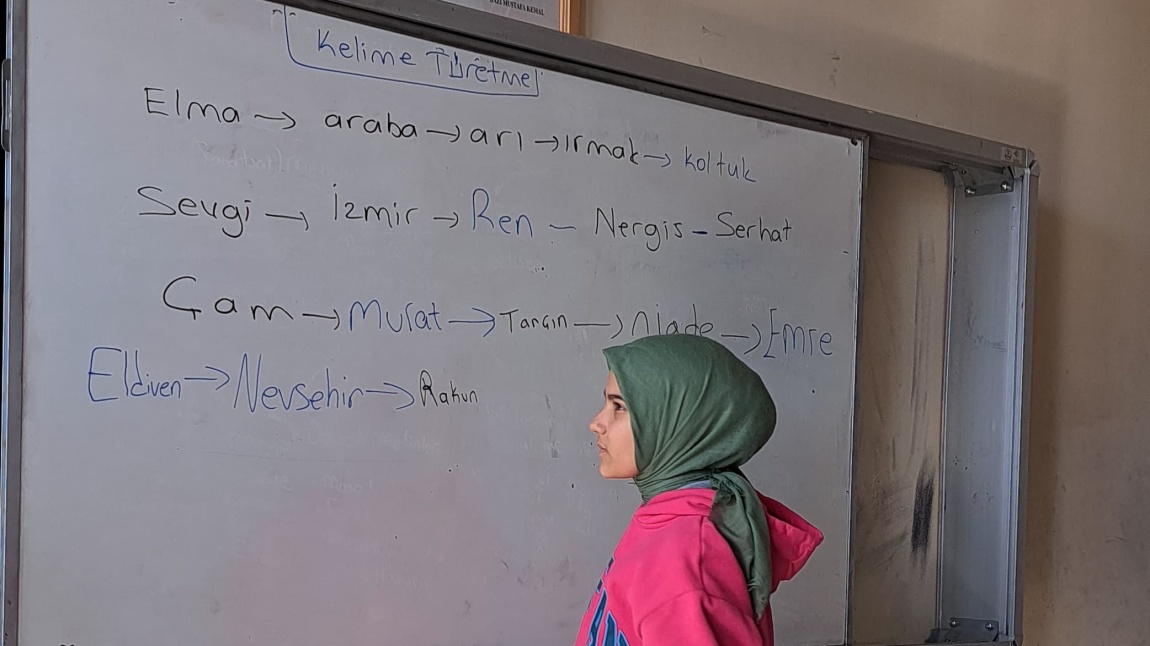 GAZİ MUSTAFA KEMAL
Kelime Türetme
Elma → araba → arı → ırmak → koltuk
Sevgi → İzmir → Ren – Nergis – Serhat
Çam → Murat → Tarçın → niade → Emre
Eldiven → Nevsehir → Rakun